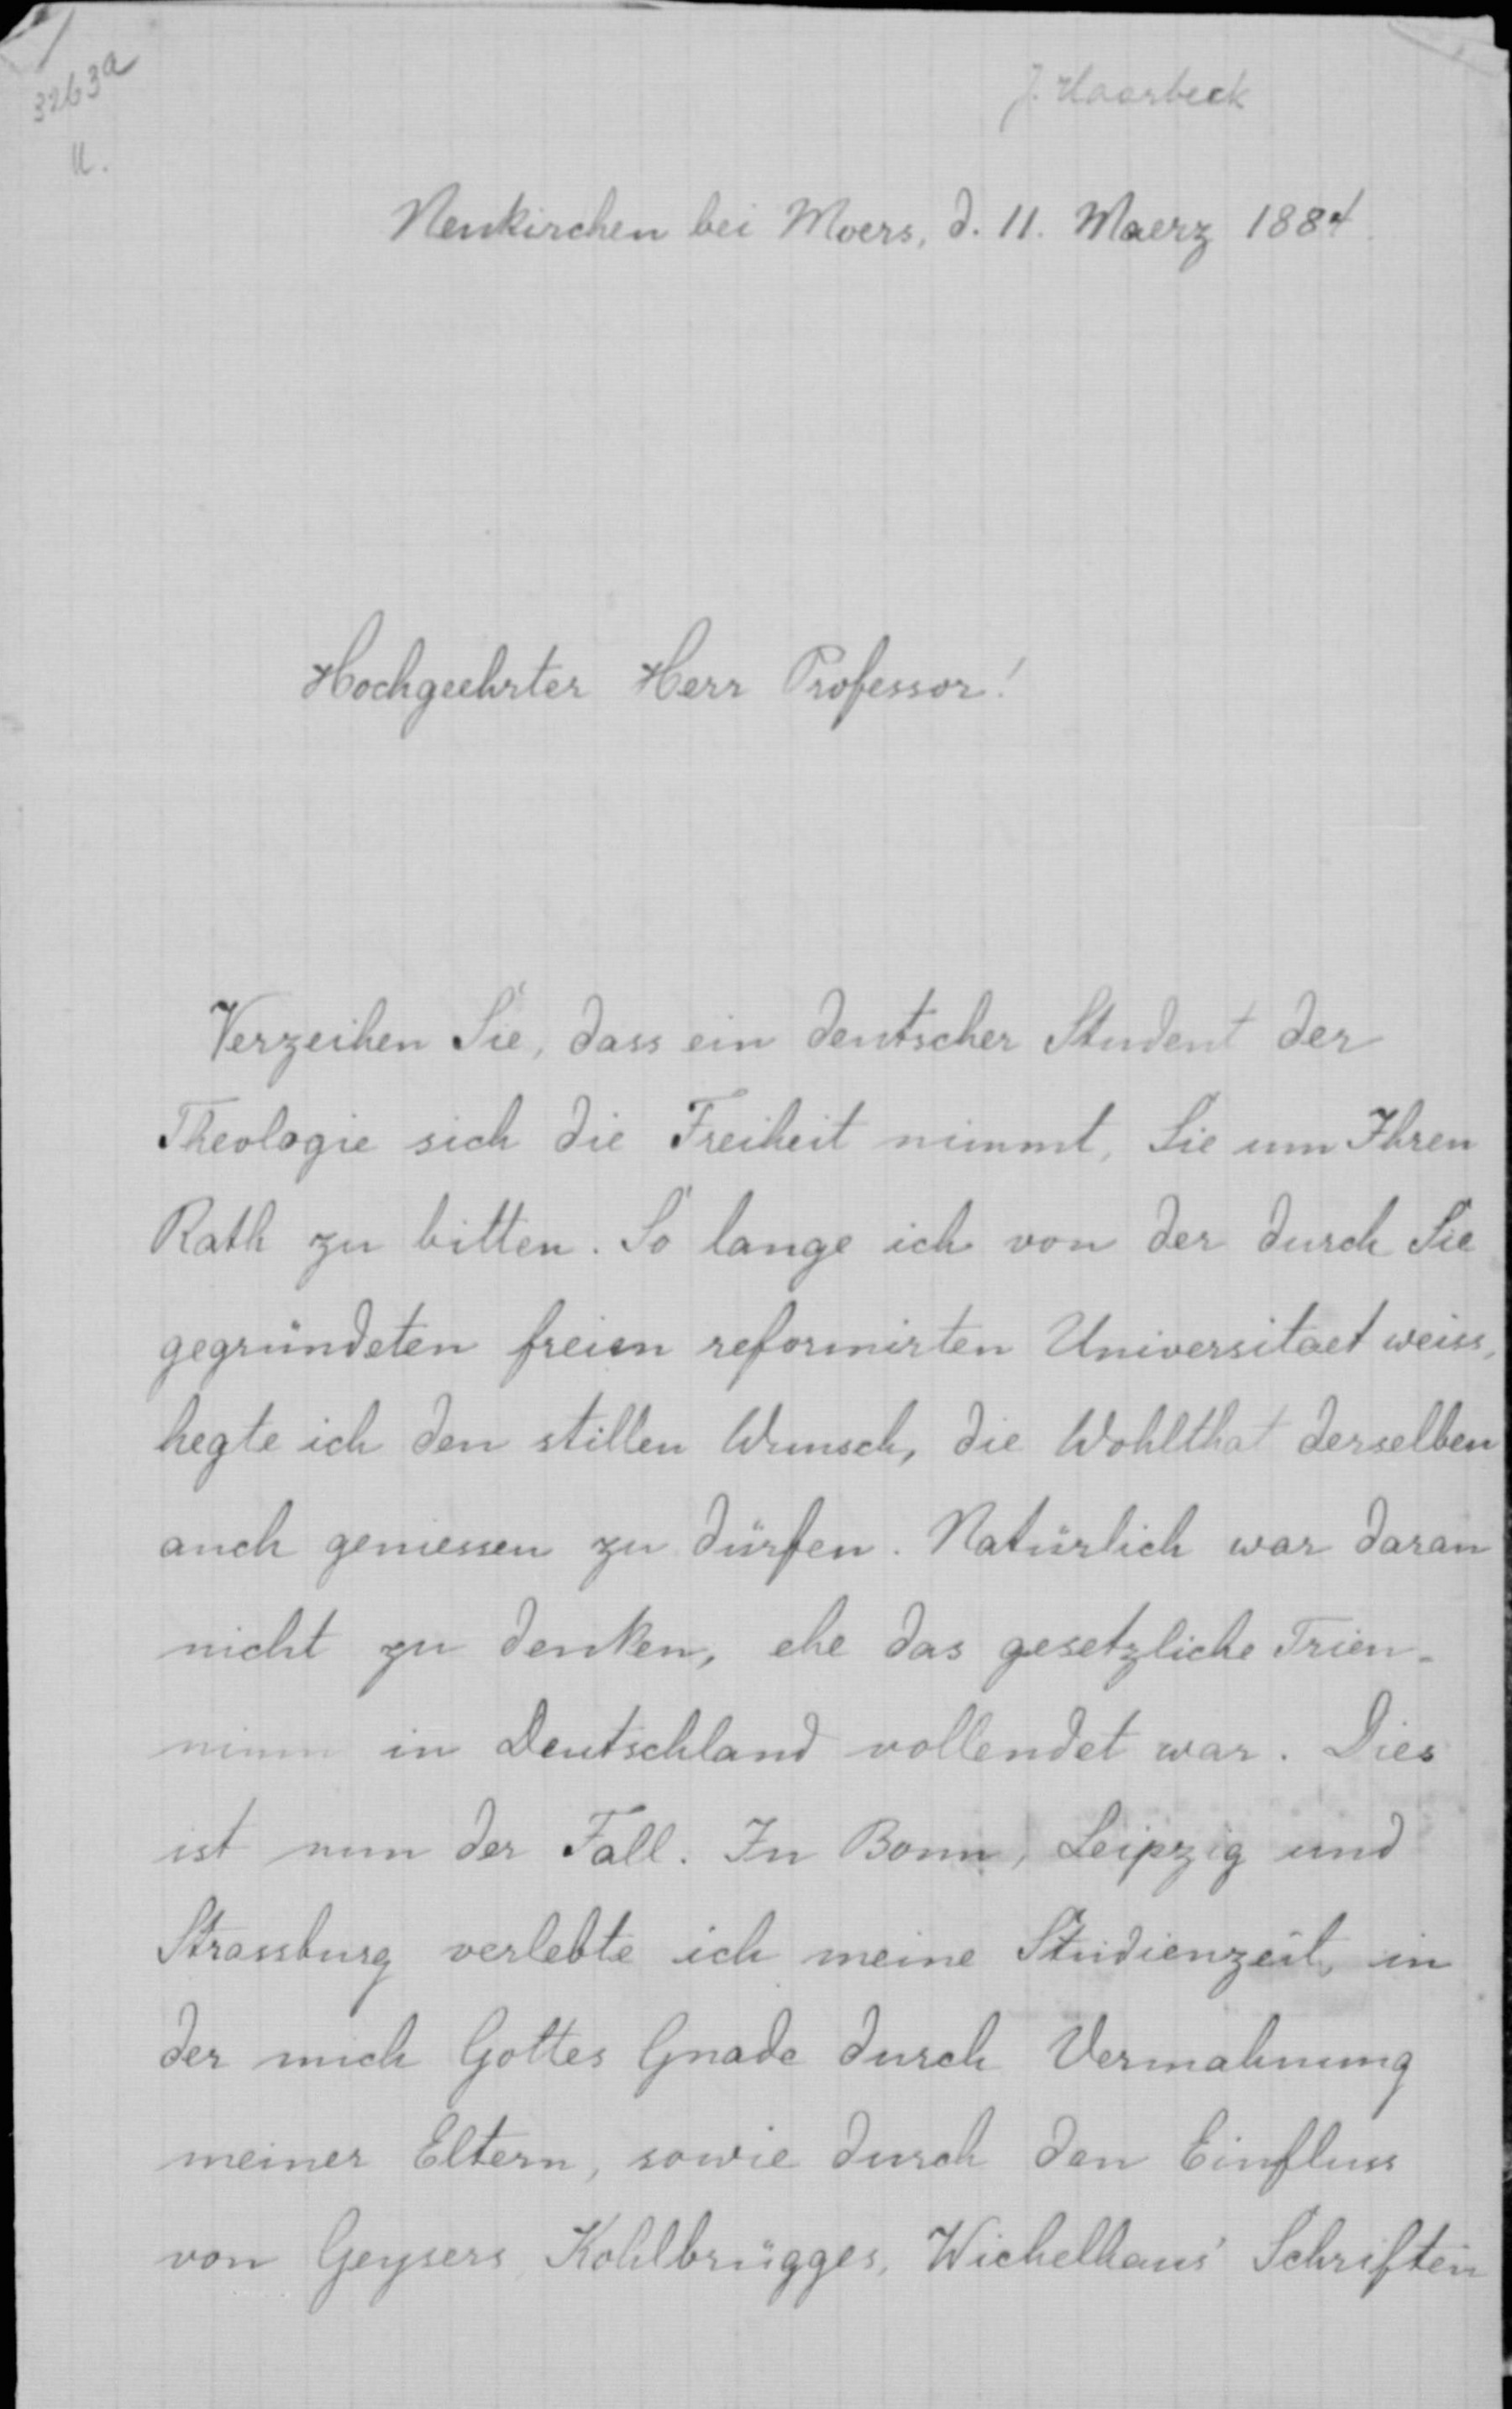 3263a
J. Haarbeck
Neukirchen bei Moers, d. 11. Maerz 1884
Hochgeehrter Herr Professor!
Verzeihen Sie, dass ein deutscher Student der
Theologie sich die Freiheit nimmt, Sie um Ihren
Rath zu bitten. So lange ich von der durch Sie
gegründeten freien reformirten Universitaet weiss,
hegte ich den stillen Wunsch, die Wohlthat derselben
auch geniessen zu dürfen. Natürlich war daran
nicht zu denken, ehe das gesetzliche Trien-
nium in Deutschland vollendet war. Dies
ist nun der Fall. In Bonn, Leipzig und
Strassburg verlebte ich meine Studienzeit, in
der mich Gottes Gnade durch Vermahnung
meiner Eltern, sowie durch den Einfluss
von Geysers, Kohlbrügges, Wichelhaus' Schriften